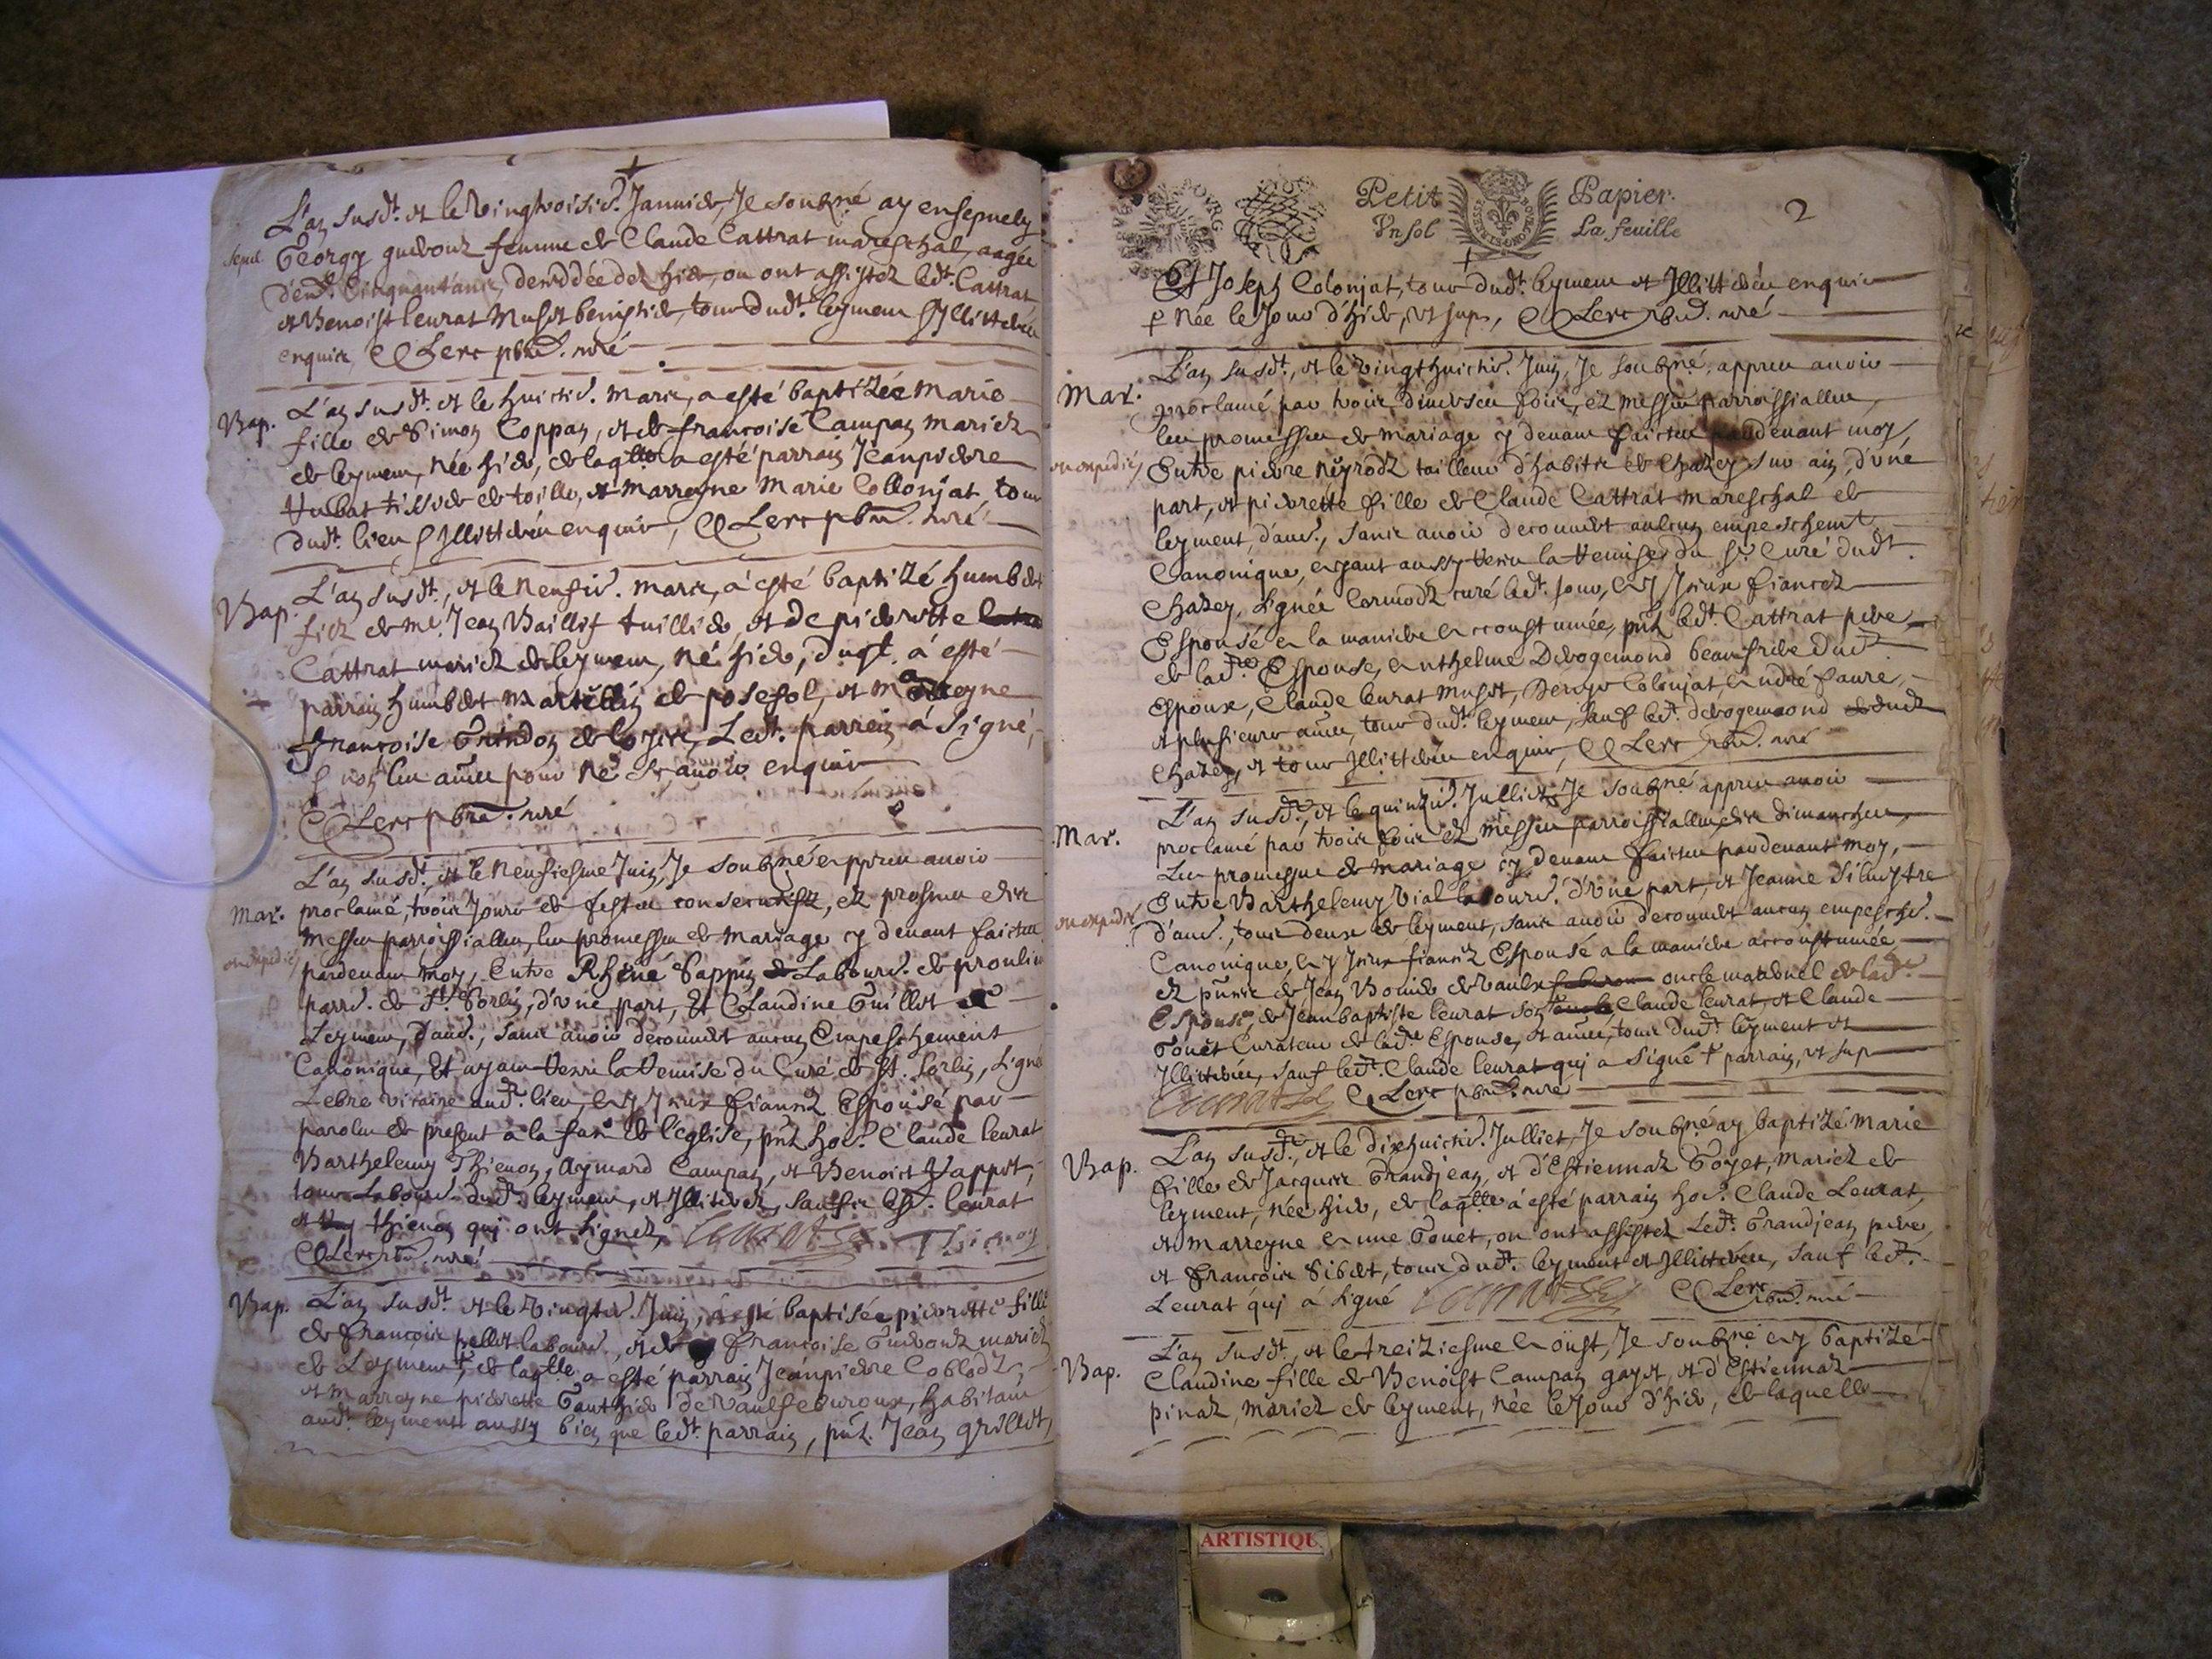 L'an susd.t et le vingttroisie. Janvier, Je soubz.né ay ensepuely
sepul. Georgy guerdonz femme de Claude Cattrat mareschal, aagée
d'env. Cinquant'ans, deceddée dez hier, ou ont assistez led.t Cattrat
et Benoist leurat Musot benistier, tous dud.t leymen Illitterés
enquis, C Clerc pbre. curé
Bap. L'an susd.t et le huictie. Mars, a esté baptizée Marie
fille de Simon Coppan, et de francoise Campan mariez
de leymen, née hier, de laqlle a esté parrain Jeanpierre
Hubat tissier de toille, et marreyne Marie Collonjat, tous
dud.t lieu Illitterés enquis, C Clerc pbre. curé
Bap. L'an susd.t, et le neufie. Mars, a esté baptizé humbert
filz de Me. Jean Baillif tuillier, et de pierrette
Cattrat mariez de leymen, né hier, duql. a esté
parrain humbert Martellin de posesol, et Marreyne
francoise Grindon de loyse, Led.t parrein a signé,
non les aües pour ne scavoir enquis
C Clerc pbre. curé
Mar. L'an susd.t, et le neufiesme Juin, Je soubz.né appres avoir
proclamé, trois Jours de festes consecutifz, ez prosnes des
Messes parroissialles, les promesses de Mariage cy devant faictes
on expedié pardevant moy, Entre Rhéné Sappin Labour. de proulieu
parr. de St. Sorlin, d'vne part, Et Claudine Guillot de
Leymen, d'aud., sans avoir decouvert aucun Empeschement
Canonique, Et ayant Venu la Remise du Curé de St. Sorlin, signé
Lebre vicaire aud.t lieu, les ay fiancéz Espousé par
paroles de present a la face de l'eglise, pnt. ho. Claude leurat
Barthelemy Thienon, Aymard Campan, et Benoict Vappot,
tous Labour. dud.t leymen, et Illiterez, saufz led. leurat
et Thienon qui ont signez, leurat Thienon
C Clerc pbre. curé
Bap. L'an susd.t et le vingtie. Juin, a esté baptisée pierrette fille
de francois pellet labour., et de francoise Guerdonz mariez
de Leymen, de laqlle a esté parrain Jeanpierre Coblodz,
et Marreyne pierrette Gauthier de vaulfeburoux, habitans
aud.t leyment aussy bien que led.t parrain, pnt. Jean grillet,
Petit Papier.
Vn sol La feuille
2
Et Joseph Colonjat, tous dud.t leymen et Illitterés enquis
Née le Jour d'hier, et sups, C Clerc pbre. curé
Mar. L'an susd.t, et le vingthuictie. Juin, Je soubz.né, appres avoir
proclamé par trois diverses fois, ez messes parroissialles,
les promesses de mariage cy devant faictes pardevant moy,
on expedié Entre pierre neyrodz tailleur d'habitz de Chazey sur ain, d'vne
part, et pierrette fille de Claude Cattrat Mareschal de
leyment, d'aud., sans avoir decouvert aulcun empeschem.t
Canonique, ayant aussy Venu la Remise du sr. Curé dud.t
Chazey, signée Cermodz curé led.t Jour, les ay fiancez
Espousé en la maniere accoustumée, pnt. led.t Cattrat pere
de lad.te Espouse, Anthelme Derogemond beaufrere dud.t
Espoux, Claude leurat musot, Colonjat, André faure,
et plusieurs aües, tous dud.t leymen, sauf led.t derogemond
Chazey, et tous Illitterés enquis, C Clerc pbre. curé
Mar. L'an susd.t, et le quinzie. Julliet, Je soubz.né appres avoir
proclamé par trois fois ez Messes parroissialles, des dimanches,
Les promesse de Mariage cy devant faictes pardevant moy,
on expedié Entre Barthelemy Vial labour. d'vne part, et Jeanne Siluestre
d'aud., tous deux de leyment, sans avoir decouvert aucun empesche.
Canonique, les ay fiancéz Espousé a la maniere accoustumée
ez pnce de Jean Bouvier de vaulx oncle maternel de lad.te
Espouse, de Jeanbaptiste leurat son Claude leurat, et Claude
Gouet Curateur de lad.te Espouse, et aües, tous dud.t leyment et
Illitterés, sauf led.t Claude leurat qui a signé parrain, et sup
leurat C Clerc pbre. curé
Bap. L'an susd.t, et le dixhuictie. Julliet, Je soubz.né ay baptizé Marie
fille de Jacques Grandjean, et d'Estiennaz Goyet, Mariez de
leyment, née hier, de laqlle a esté parrain ho. Claude Leurat,
et marreyne Anne Gouet, ou ont assistez Led.t Grandjean pere,
et francois Sibert, tous dud.t leyment et Illitterés, sauf led.t
Leurat qui a signé leurat C Clerc pbre. curé
Bap. L'an susd.t, et le treiziesme Aoust, Je soubz.né ay baptizé
Claudine fille de Benoist Campan gayet, et d'Estiennaz
pinaz, Mariez de leyment, née le Jour d'hier, de laquelle
ARTISTIQU